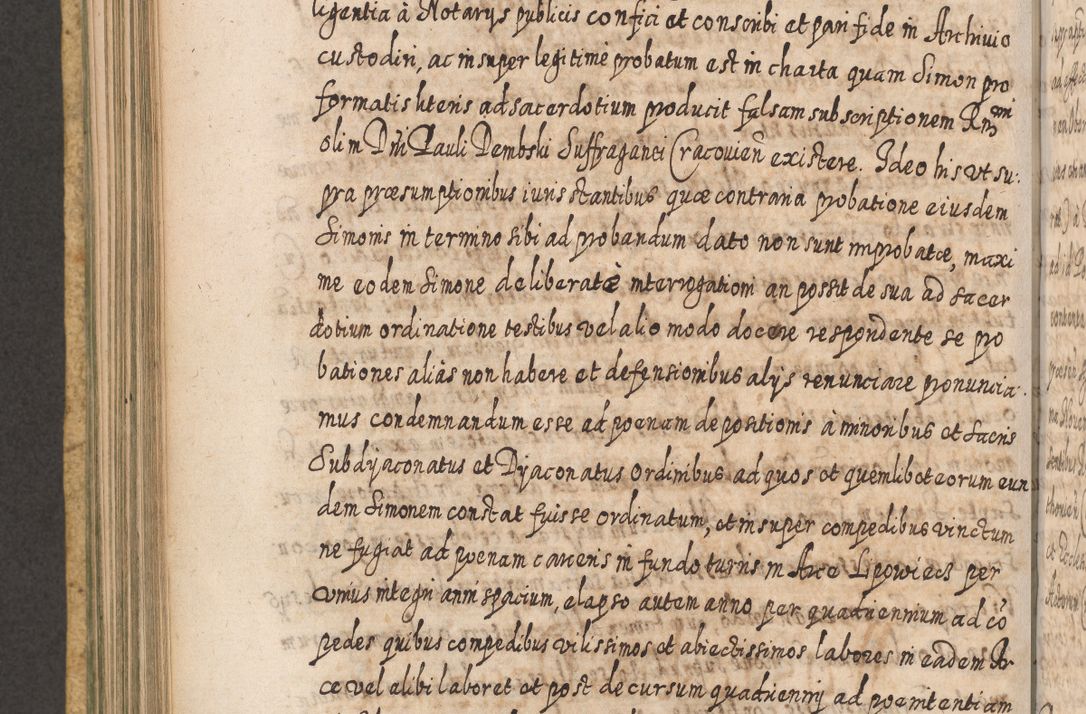 ligentia à Notarijs publicis confici et conscribi et pari fide in Archiuio
custodiri, ac insuper legitime probatum est in charta quam Simon pro
formatis literis ad sacerdotium producit falsam subscriptionem Rndmi
olim Dni Pauli Dembski Suffraganei Cracouien existere. Ideo his vt su:
pra præsumptionibus iuris stantibus quæ contraria probatione eiusdem
Simonis in termino sibi ad probandum dato non sunt improbatæ, maxi
me eodem Simone deliberatè interrogationi an possit de sua ad sacer
dotium ordinatione testibus vel alio modo docere respondente se pro
bationes aliàs non habere et defensionibus alijs renunciare pronuncia:
mus condemnandum esse ad pœnam depositionis à minoribus et sacris
Subdyaconatus et Dyaconatus ordinibus ad quos et quemlibet eorum eun
dem Simonem constat fuisse ordinatum, et insuper compedibus vinctum
ne fugiat ad pœnam carceris in fundo turris in Arce Lipowiecz per
vnius integri anni spacium, elapso autem anno per quadriennium ad cō
pedes quibus compedibus vilissimos et abiectissimos labores in eadem Ar
ce vel alibi laboret et post decursum quadriennij ad pœnitentiam